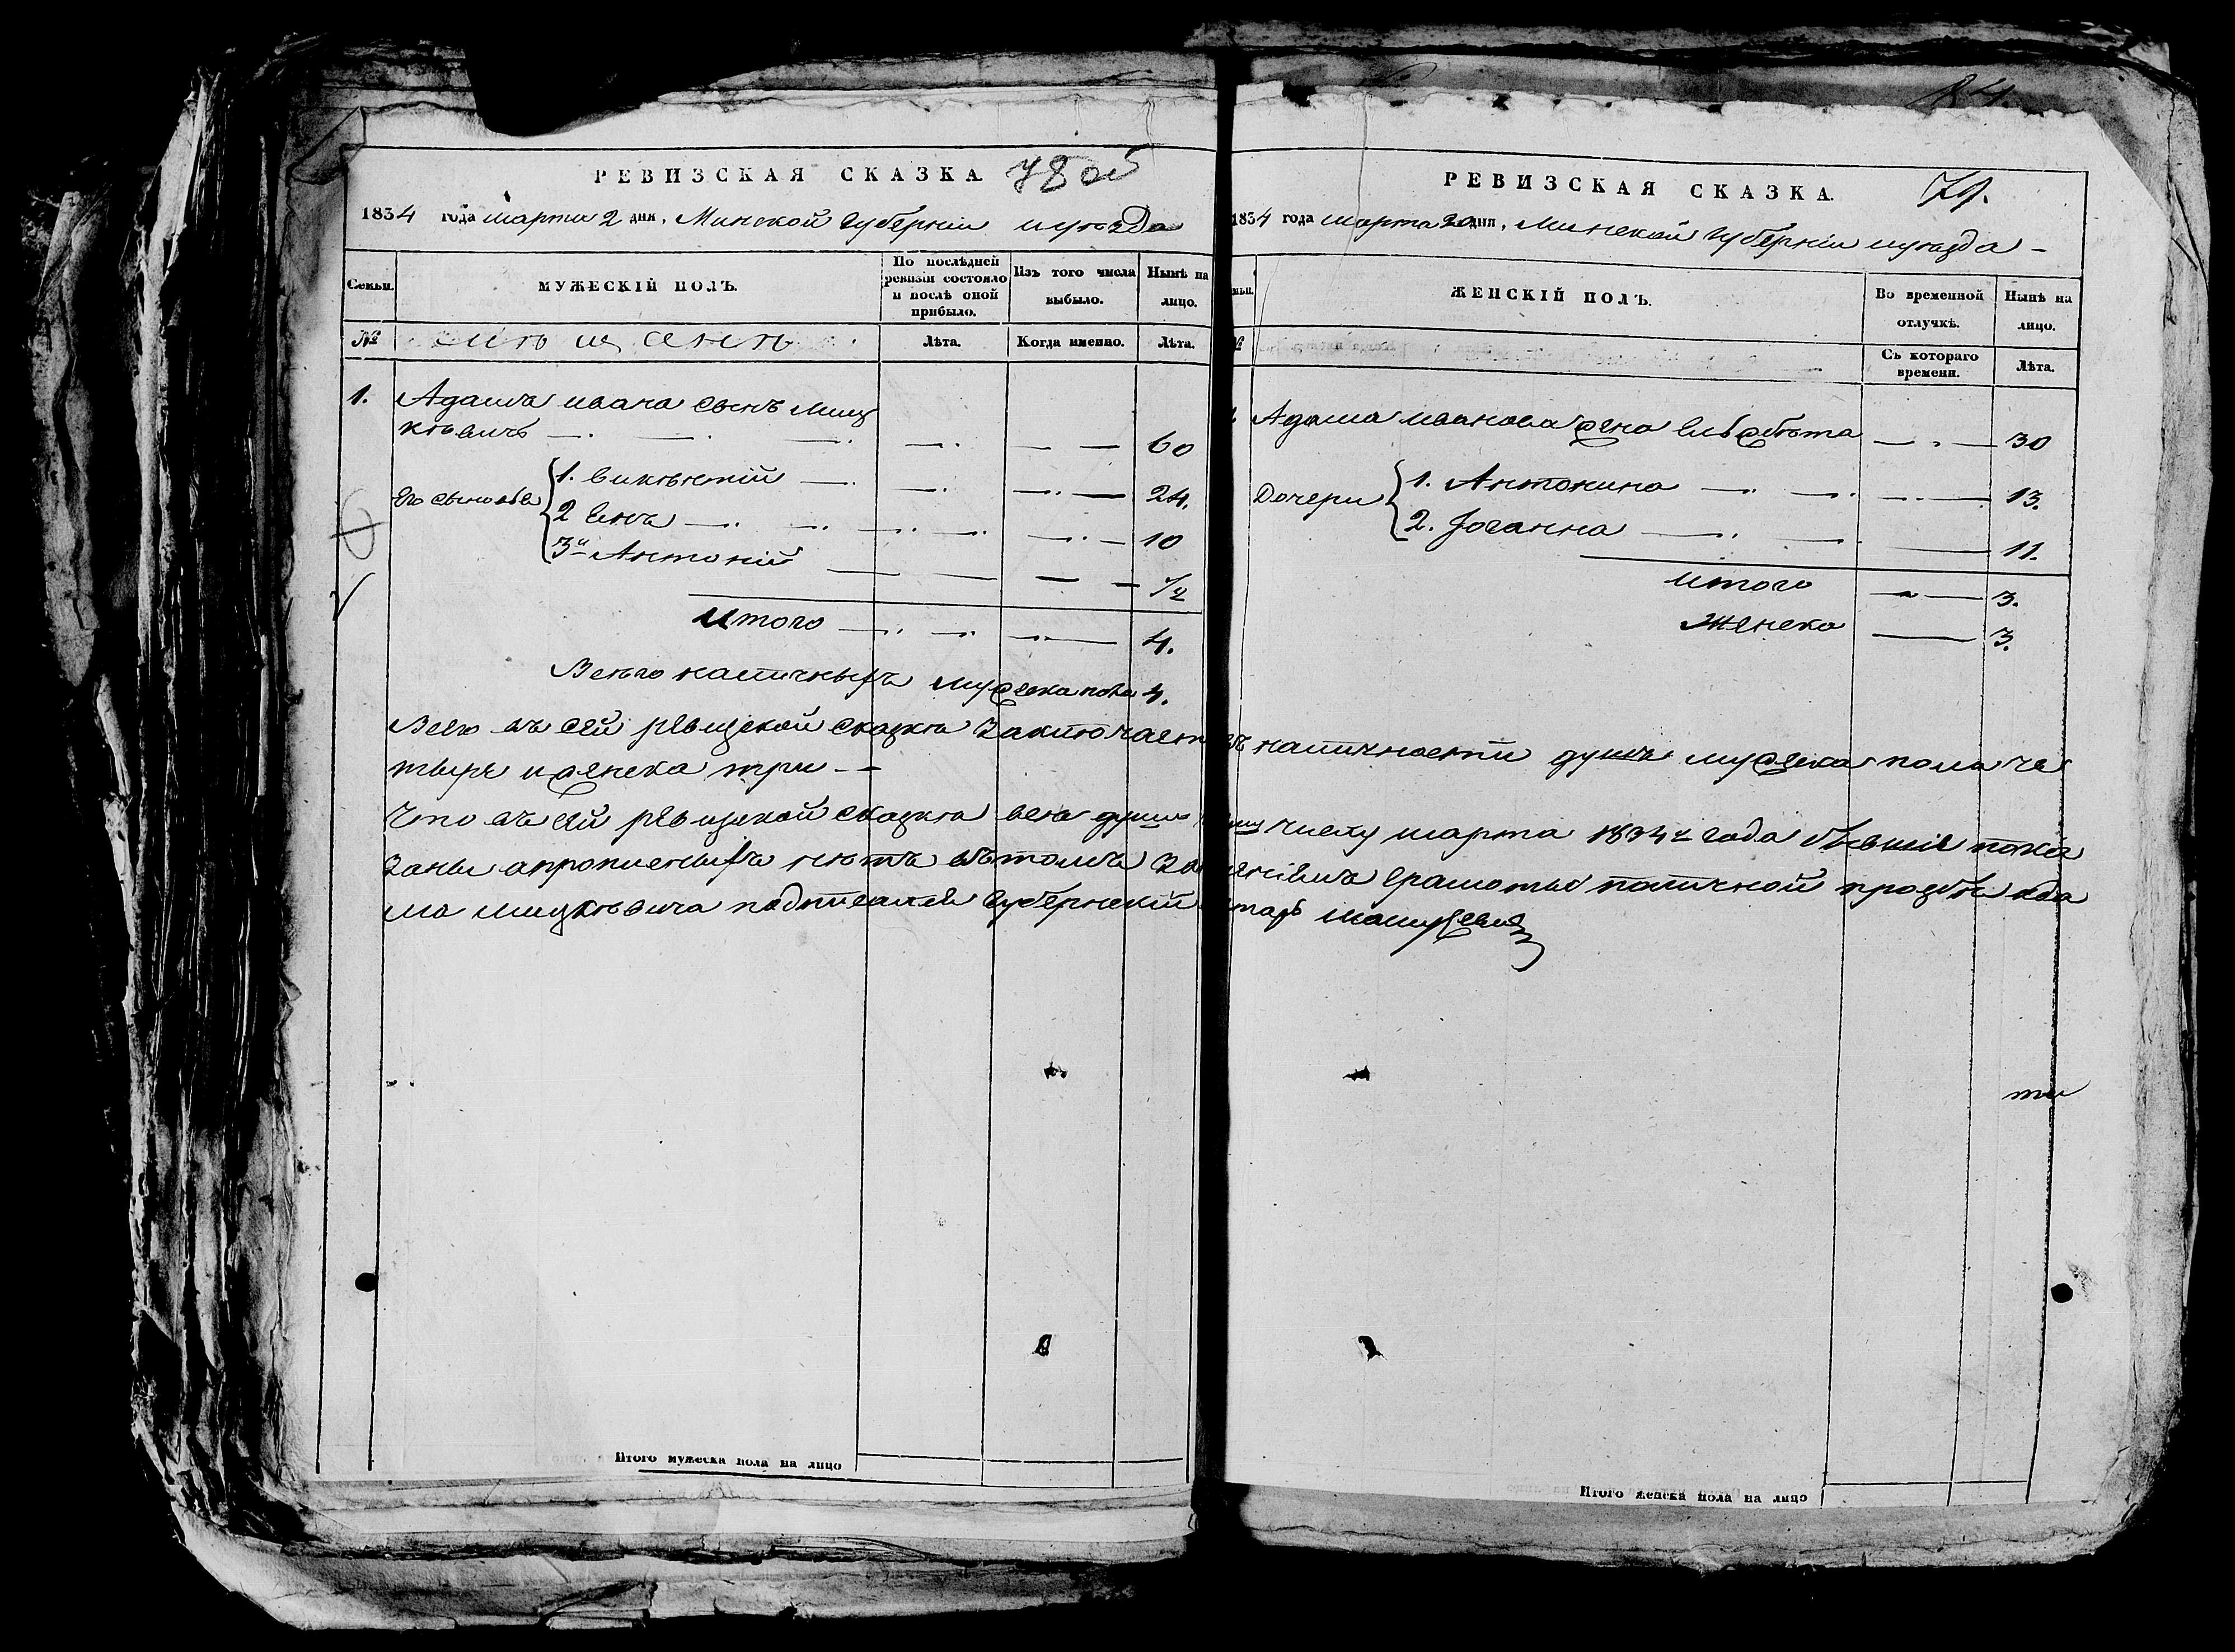 84.
РЕВИЗСКАЯ СКАЗКА. 78ой
1834 года марта 2 дня, Минской Губерніи и уѣзда
Семьи.
МУЖЕСКІЙ ПОЛЪ.
По послѣдней ревизіи состояло и послѣ оной прибыло.
Изъ того числа выбыло.
Нынѣ на лицо.
№
Лѣта.
Когда именно.
Лѣта.
1. Адамъ Ивана сынъ Миц
кѣвичъ 60
Его сыновья 1. Викѣнтій 24.
2 Янъ 10
3й Антоній 1/2
Итого 4.
Всего наличныхъ мужеска пола 4.
РЕВИЗСКАЯ СКАЗКА. 79.
1834 года марта 2 дня, Минской Губерніи и уѣзда
№
ЖЕНСКІЙ ПОЛЪ.
Во временной отлучкѣ.
Нынѣ на лицо.
Съ котораго времени.
Лѣта.
1. Адама Иванова жена Елѣжбѣта 30
Дочери 1. Антонина 13.
2. Іоганна 11.
Итого 3.
Женска 3.
Всего въ сей ревизской сказкѣ заключает въ наличности душъ мужеска пола че
тыре и женска три
Что въ сей ревизской сказкѣ всѣ души числу марта 1834 г года бывшіе пока
заны а прописныхъ нѣтъ вътомъ грамоты по личной прозбѣ Ада
ма Мицкѣвича подписался Губернскій
ты
Итого мужеска пола на лицо
Итого женска пола на лицо